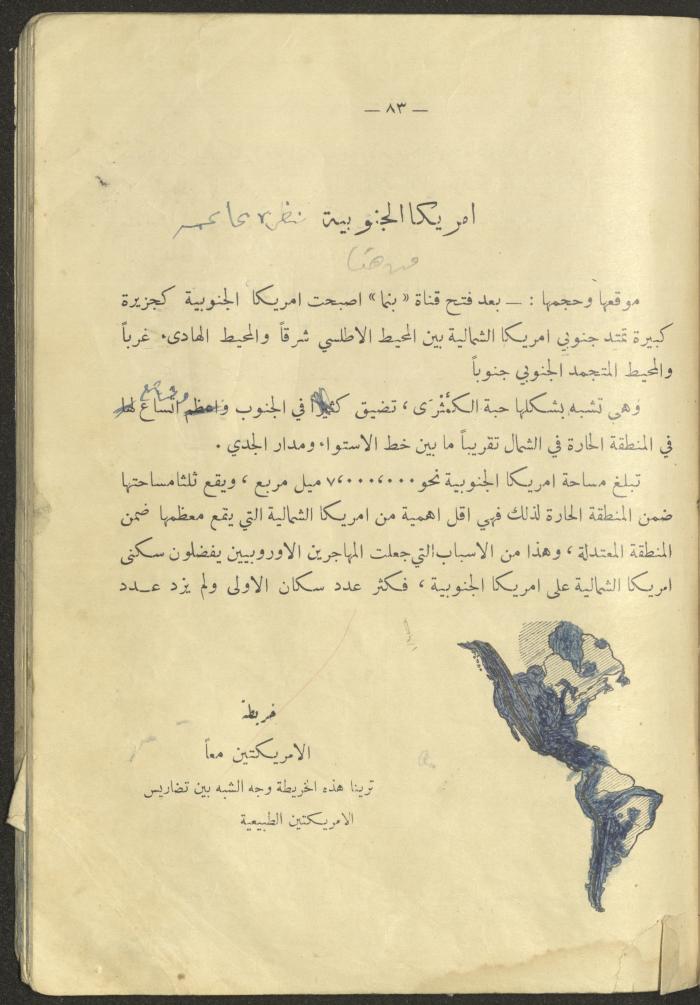 — ٨٣ —
امريكا الجنوبية نظرة عامة
من هنا
موقعها وحجمها : — بعد فتح قناة « بنما » اصبحت امريكا الجنوبية كجزيرة
كبيرة تمتد جنوبي امريكا الشمالية بين المحيط الاطلسي شرقاً والمحيط الهادىء غرباً
والمحيط المتجمد الجنوبي جنوباً
وهي تشبه بشكلها حبة الكُمَّثْرَى ، تضيق كثيراً في الجنوب واعظم اتساع لها
في المنطقة الحارة في الشمال تقريباً ما بين خط الاستواء ومدار الجدي .
تبلغ مساحة امريكا الجنوبية نحو ٧،٠٠٠،٠٠٠ ميل مربع ، ويقع ثلثا مساحتها
ضمن المنطقة الحارة لذلك فهي اقل اهمية من امريكا الشمالية التي يقع معظمها ضمن
المنطقة المعتدلة ، وهذا من الاسباب التي جعلت المهاجرين الاوروبيين يفضلون سكنى
امريكا الشمالية على امريكا الجنوبية ، فكثر عدد سكان الاولى ولم يزد عـدد
خريطة
الامريكتين معاً
ترينا هذه الخريطة وجه الشبه بين تضاريس
الامريكتين الطبيعية